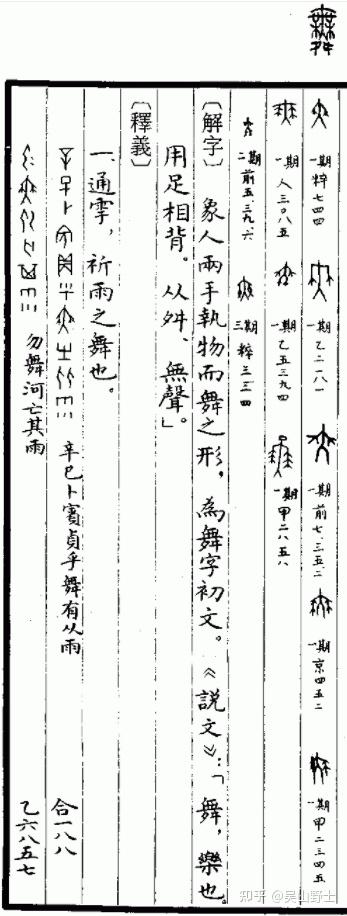 舞
一期 粹七四四 一期 乙二一八一 一期 前七.三五.二 一期 京四五二 一期 甲二三四五
一期 人三〇八五 一期 乙五三九四 一期 甲二八五八
二期 前五.三九.六 三期 粹
〔解字〕象人兩手執物而舞之形，為舞字初文。《説文》：「舞，樂也。
用足相背。从舛、無聲」。
〔釋義〕
一、通雩，祈雨之舞也。
辛巳卜賓貞乎舞有从雨 合一八八
勿舞河亡其雨 乙六八五七
知乎 @吴山野士